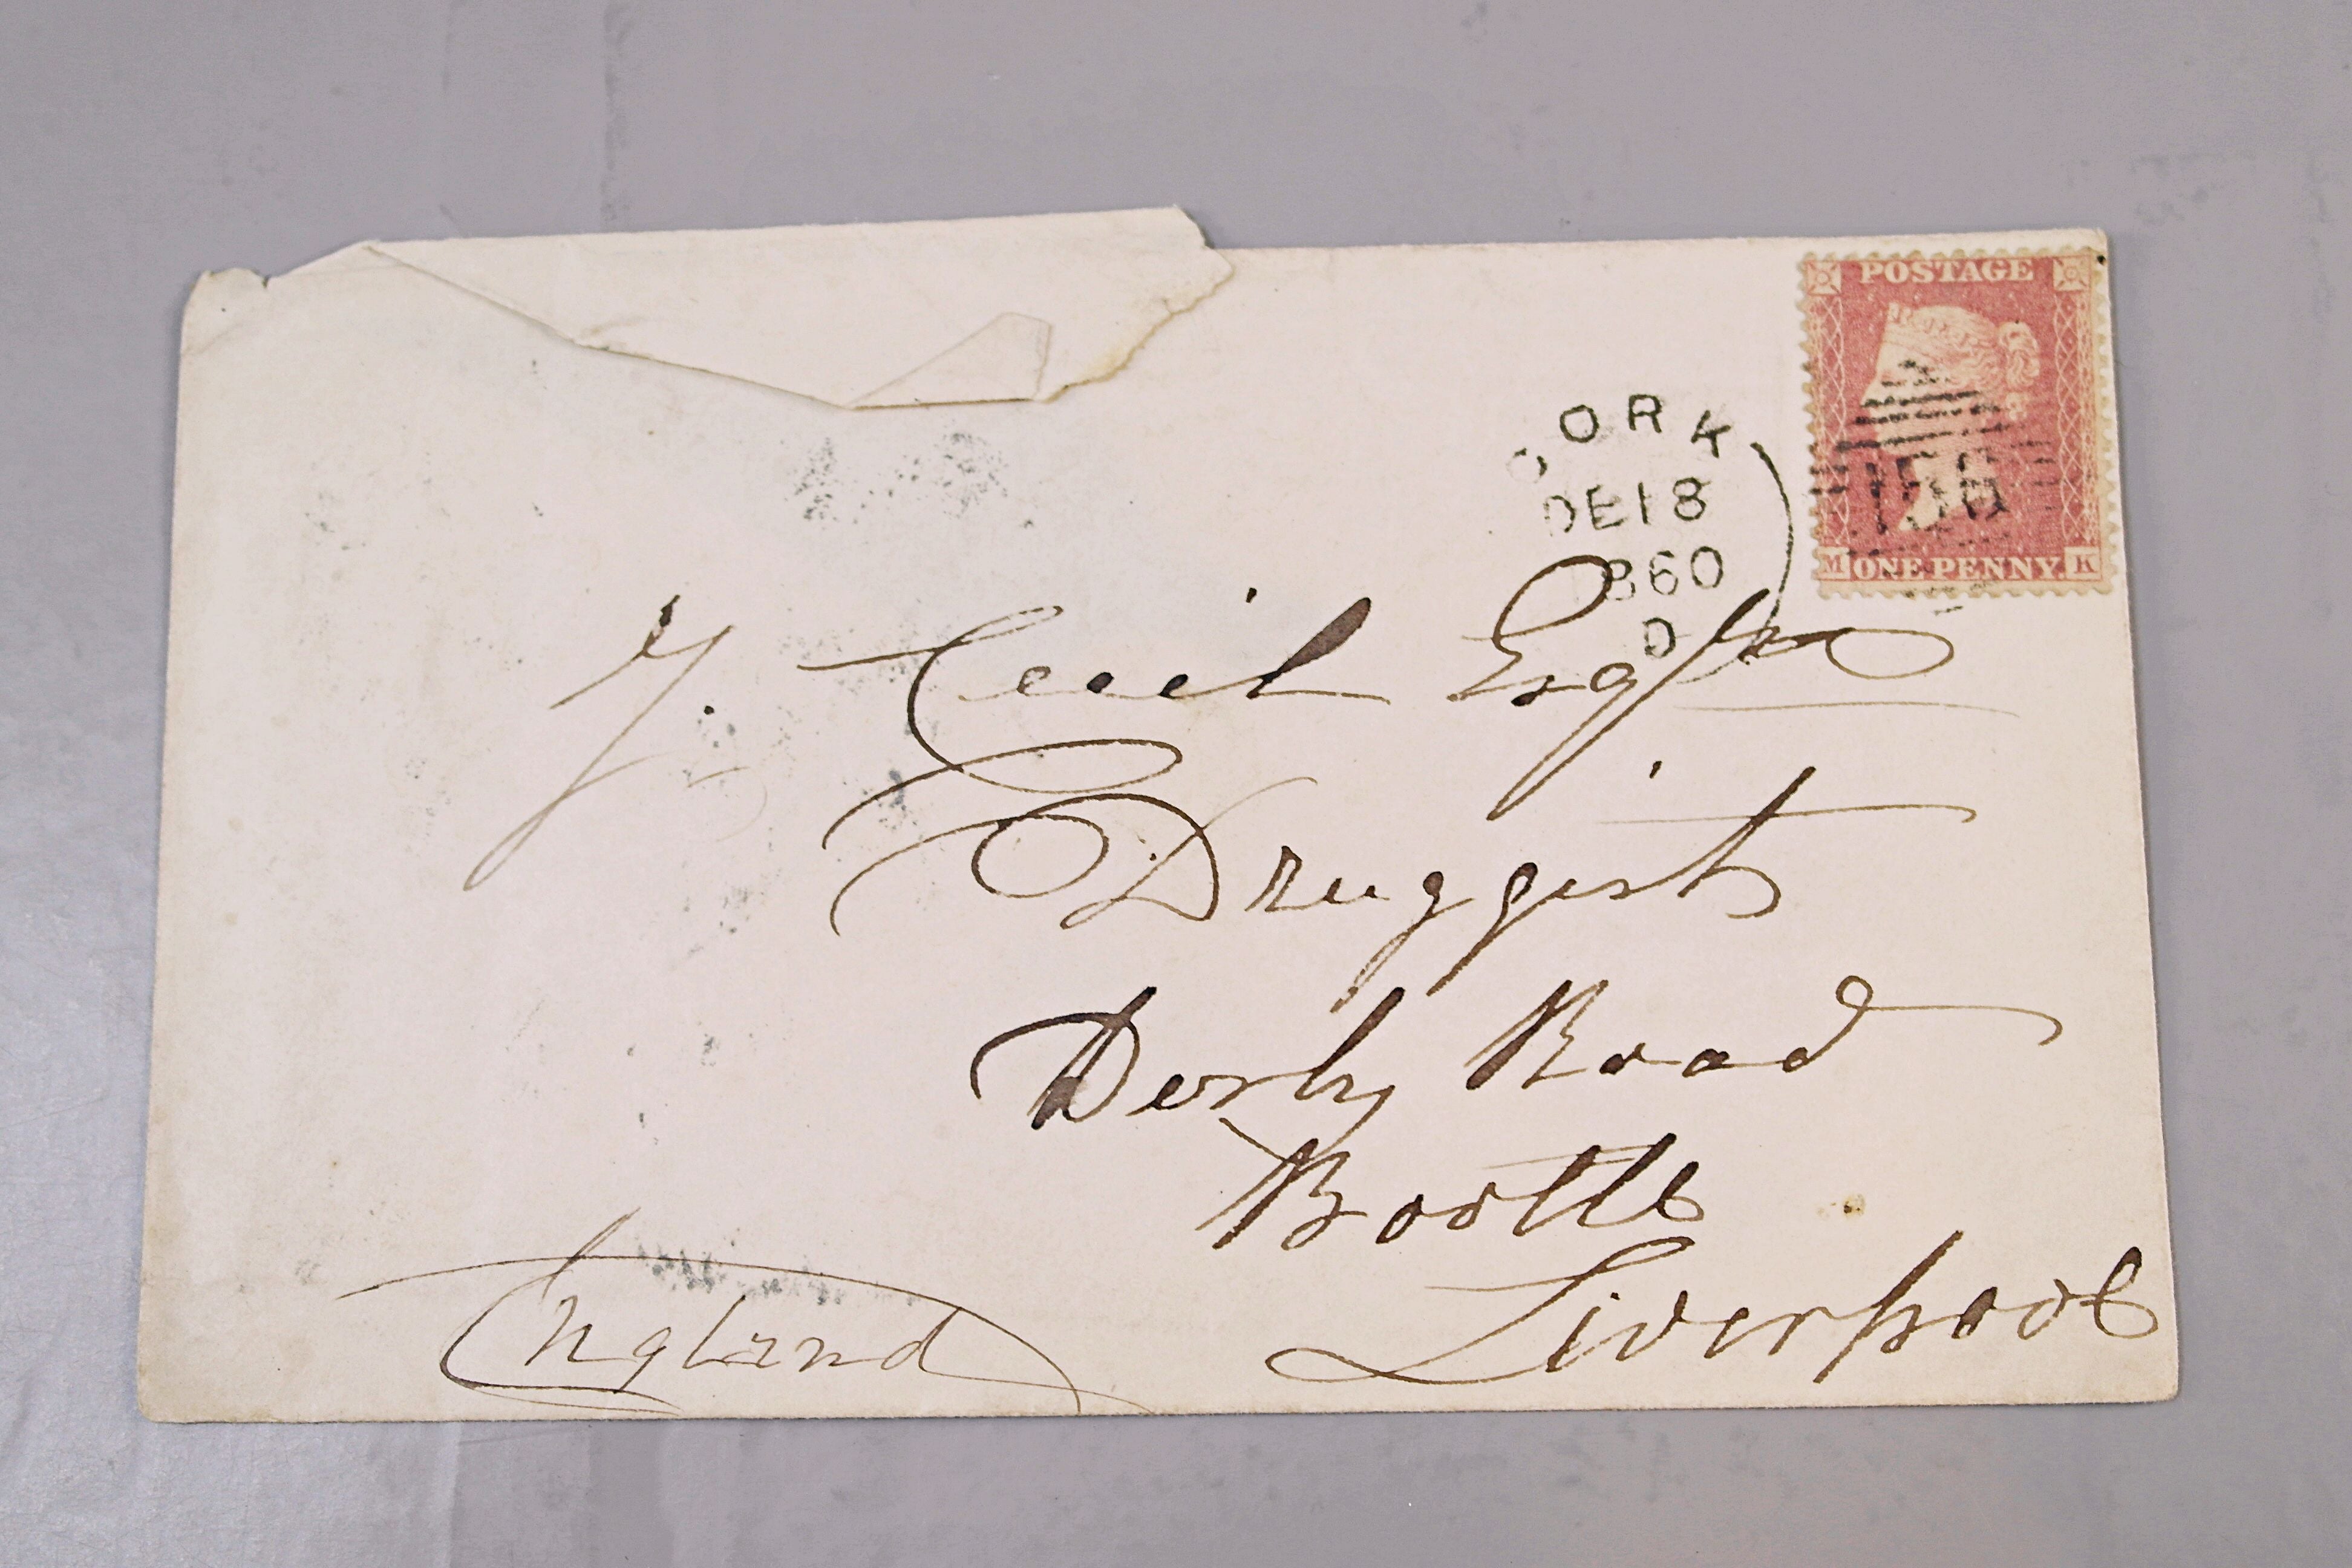 POSTAGE
156
M ONE PENNY. K
CORK
DE 18
1860
D
J. Cecil Esqre
Druggist
Derby Road
Bootle
Liverpool
England